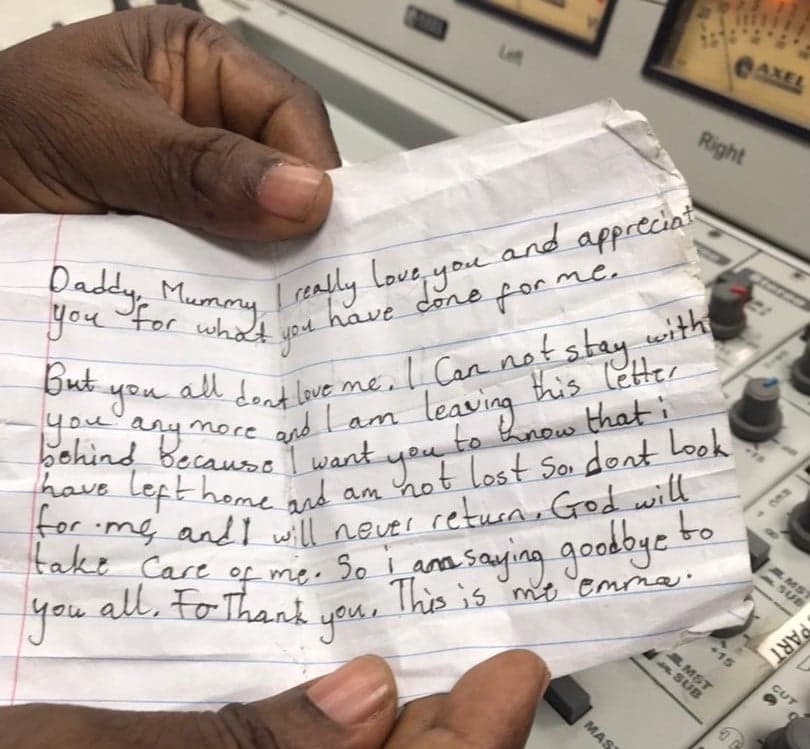 Left
AXEL
Right
Daddy, Mummy, I really love you and appreciat
you for what you have done for me.
But you all dont love me. I Can not stay with
you any more and I am leaving this letter
behind because I want you to know that i
have left home and am not lost So, dont Look
for me, and I will never return. God will
take Care of me. So i am saying goodbye to
you all. Fo Thank you. This is me emma.
+15
MST
SUB
MST
SUB
PART
+15
CUT
MAS